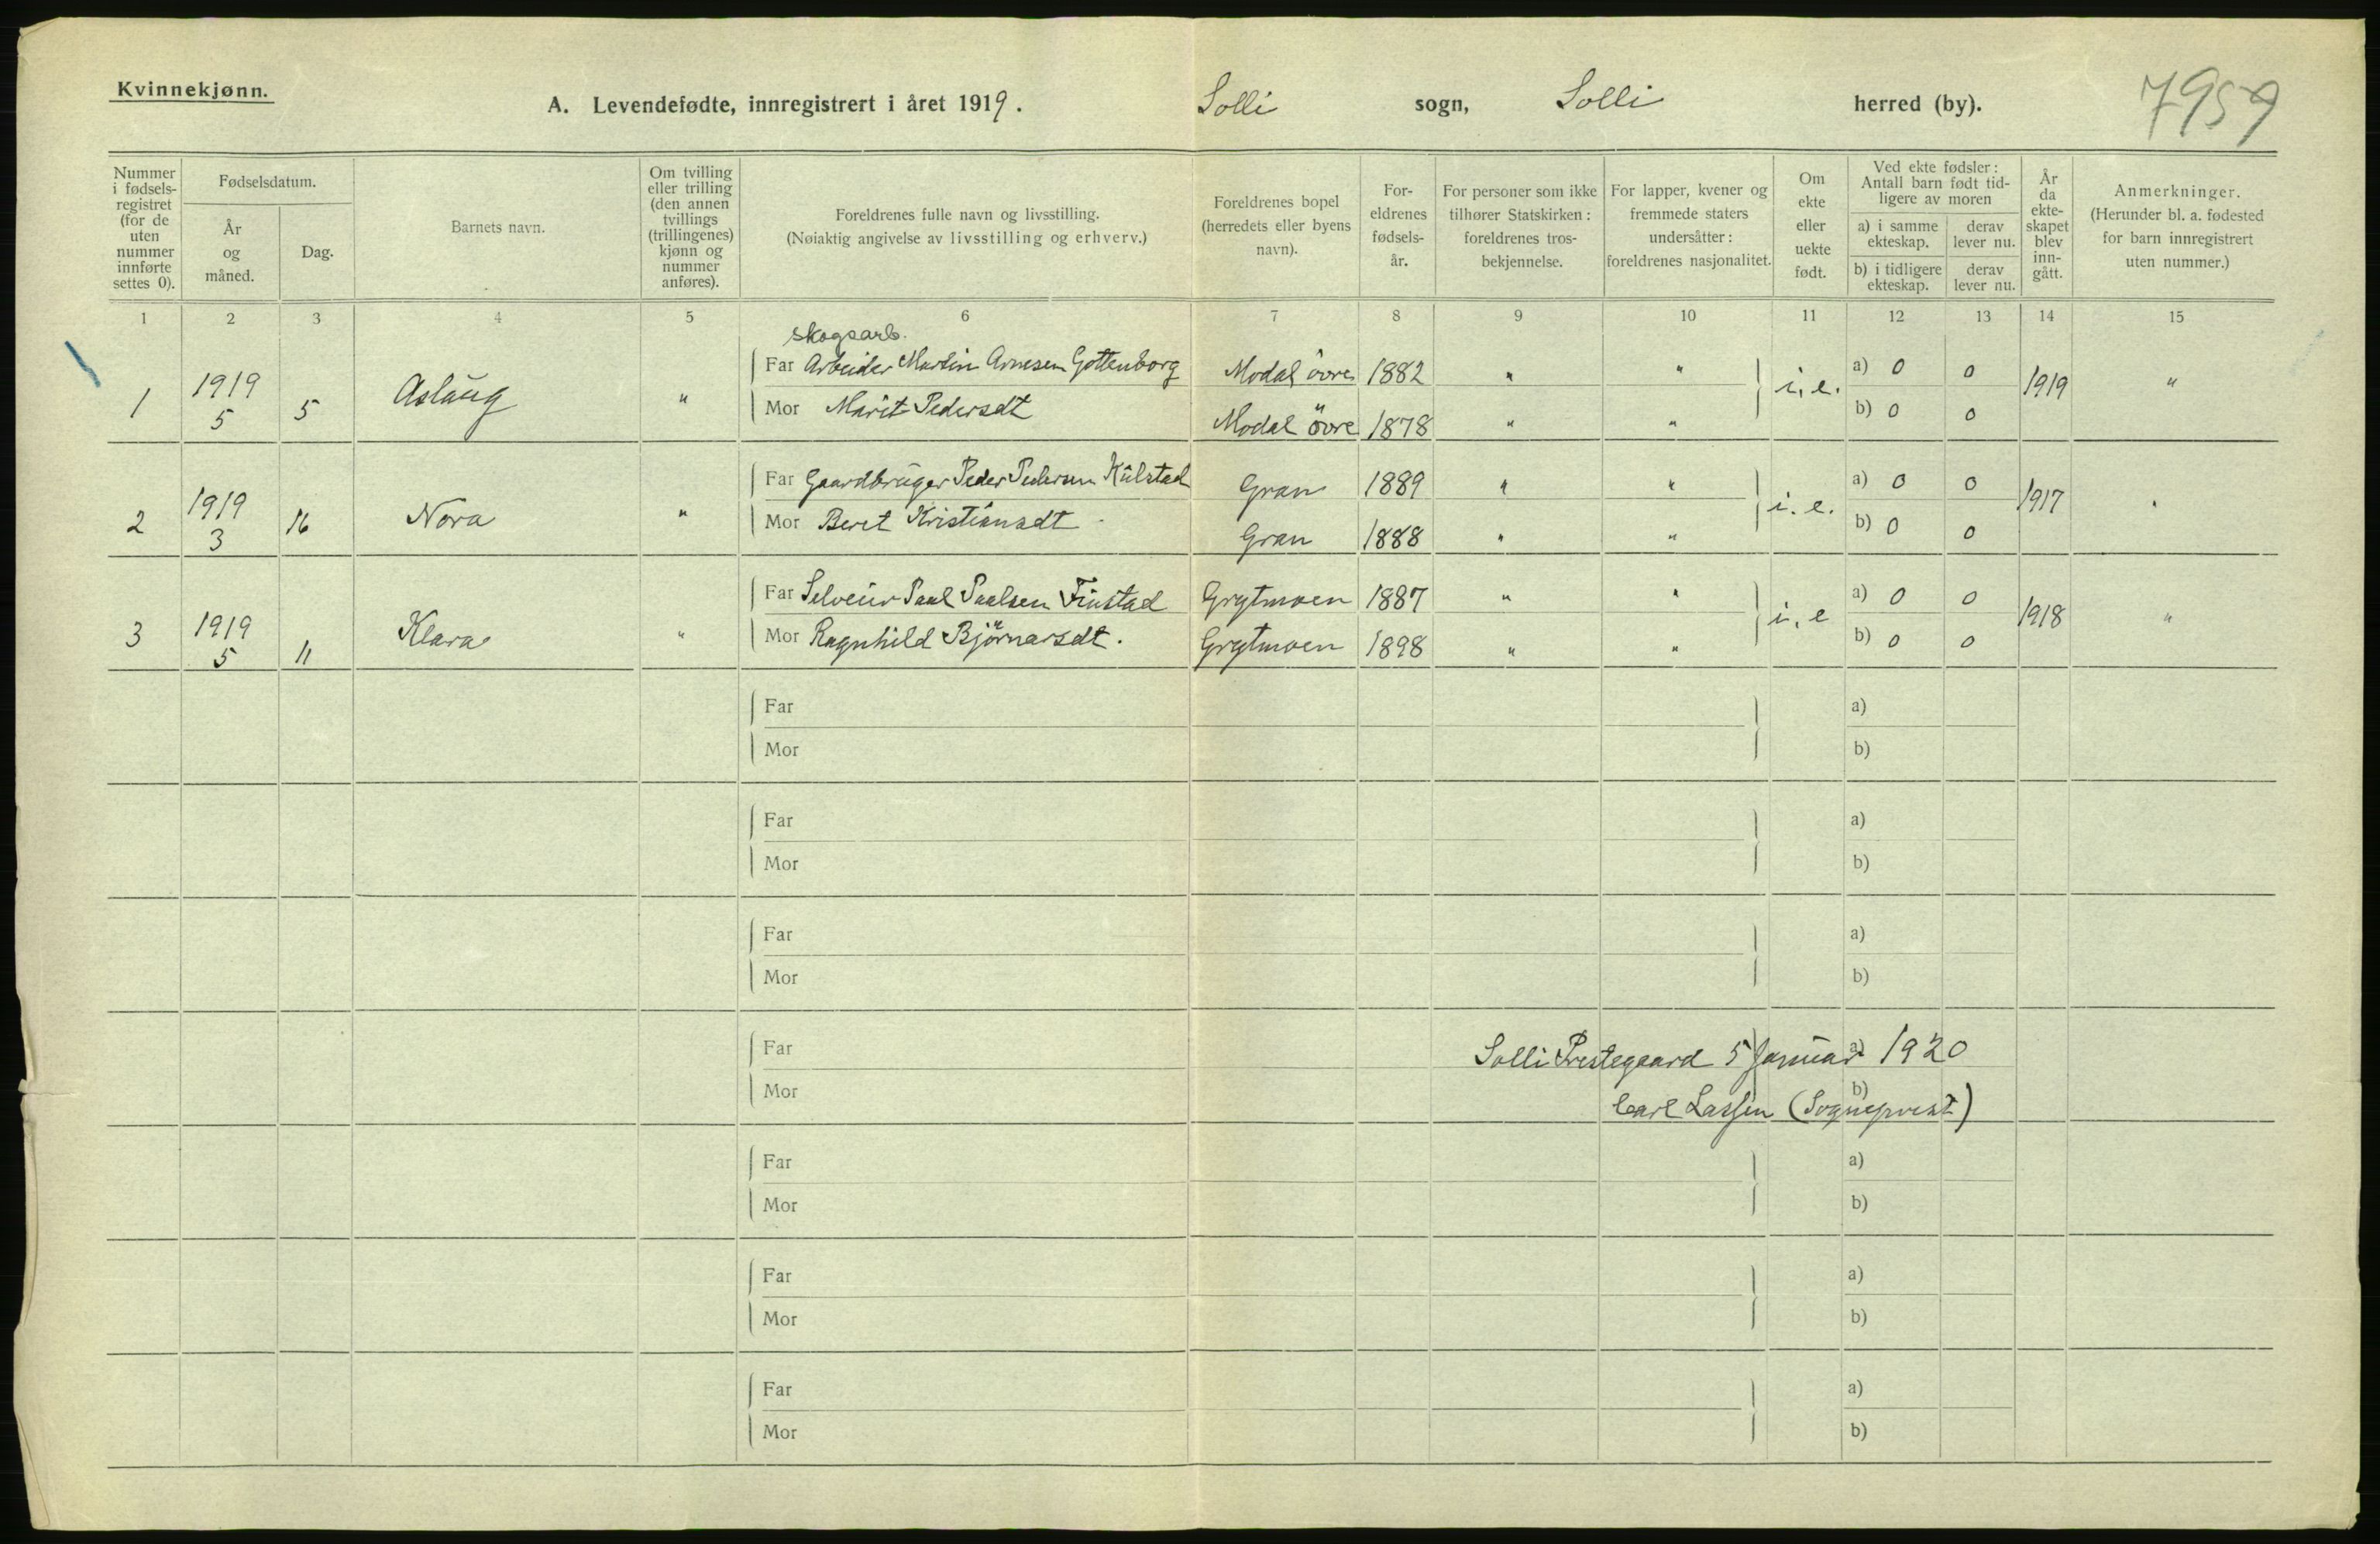 Kvinnekjønn.
A. Levendefødte, innregistrert i året 1919. Solli sogn, Solli herred (by). 7959
Nummer i fødsels-registret (for de uten nummer innførte settes 0).
Fødselsdatum.
År og måned.
Dag.
Barnets navn.
Om tvilling eller trilling (den annen tvillings (trillingenes) kjønn og nummer anføres).
Foreldrenes fulle navn og livsstilling.
(Nøiaktig angivelse av livsstilling og erhverv.)
Foreldrenes bopel (herredets eller byens navn).
For-eldrenes fødsels-år.
For personer som ikke tilhører Statskirken: foreldrenes tros-bekjennelse.
For lapper, kvener og fremmede staters undersåtter: foreldrenes nasjonalitet.
Om ekte eller uekte født.
Ved ekte fødsler: Antall barn født tid-ligere av moren
a) i samme ekteskap.
derav lever nu.
b) i tidligere ekteskap.
derav lever nu.
År da ekte-skapet blev inn-gått.
Anmerkninger.
(Herunder bl. a. fødested for barn innregistrert uten nummer.)
1 2 3 4 5 6 7 8 9 10 11 12 13 14 15
skogsarb.
1 1919 5 5 Aslaug "
Far Arbeider Martin Arnesen Gottenborg Modal övre 1882 " " i. e. a) 0 0 1919 "
Mor Marit Pedersdt Modal övre 1878 " " b) 0 0
2 1919 3 16 Nora "
Far Gaardbruger Peder Pedersen Kulstad Gran 1889 " " i. e. a) 0 0 1917 "
Mor Beret Kristiansdt Gran 1888 " " b) 0 0
3 1919 5 11 Klara "
Far Selveier Paul Paalsen Finstad Grytmoen 1887 " " i. e a) 0 0 1918 "
Mor Ragnhild Björnarsdt. Grytmoen 1898 " " b) 0 0
Far a)
Mor b)
Far a)
Mor b)
Far a)
Mor b)
Far Solli Prestegaard 5 Januar a) 1920
Mor Carl Lassen (Sogneprest) b)
Far a)
Mor b)
Far a)
Mor b)
Far a)
Mor b)